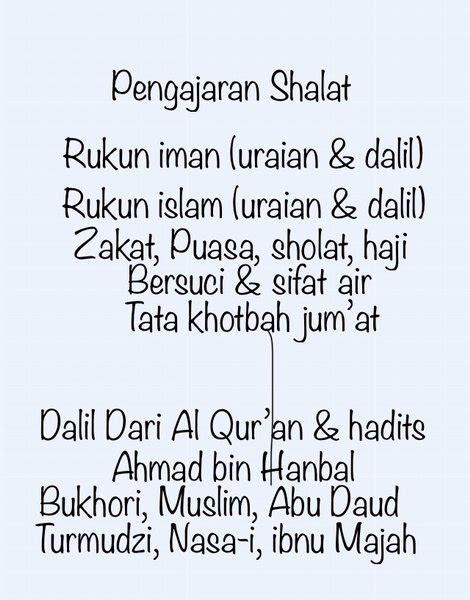 Pengajaran Shalat
Rukun iman (uraian & dalil)
Rukun islam (uraian & dalil)
Zakat, Puasa, sholat, haji
Bersuci & sifat air
Tata khotbah jum'at
Dalil Dari Al Qur'an & hadits
Ahmad bin Hanbal
Bukhori, Muslim, Abu Daud
Turmudzi, Nasa-i, ibnu Majah